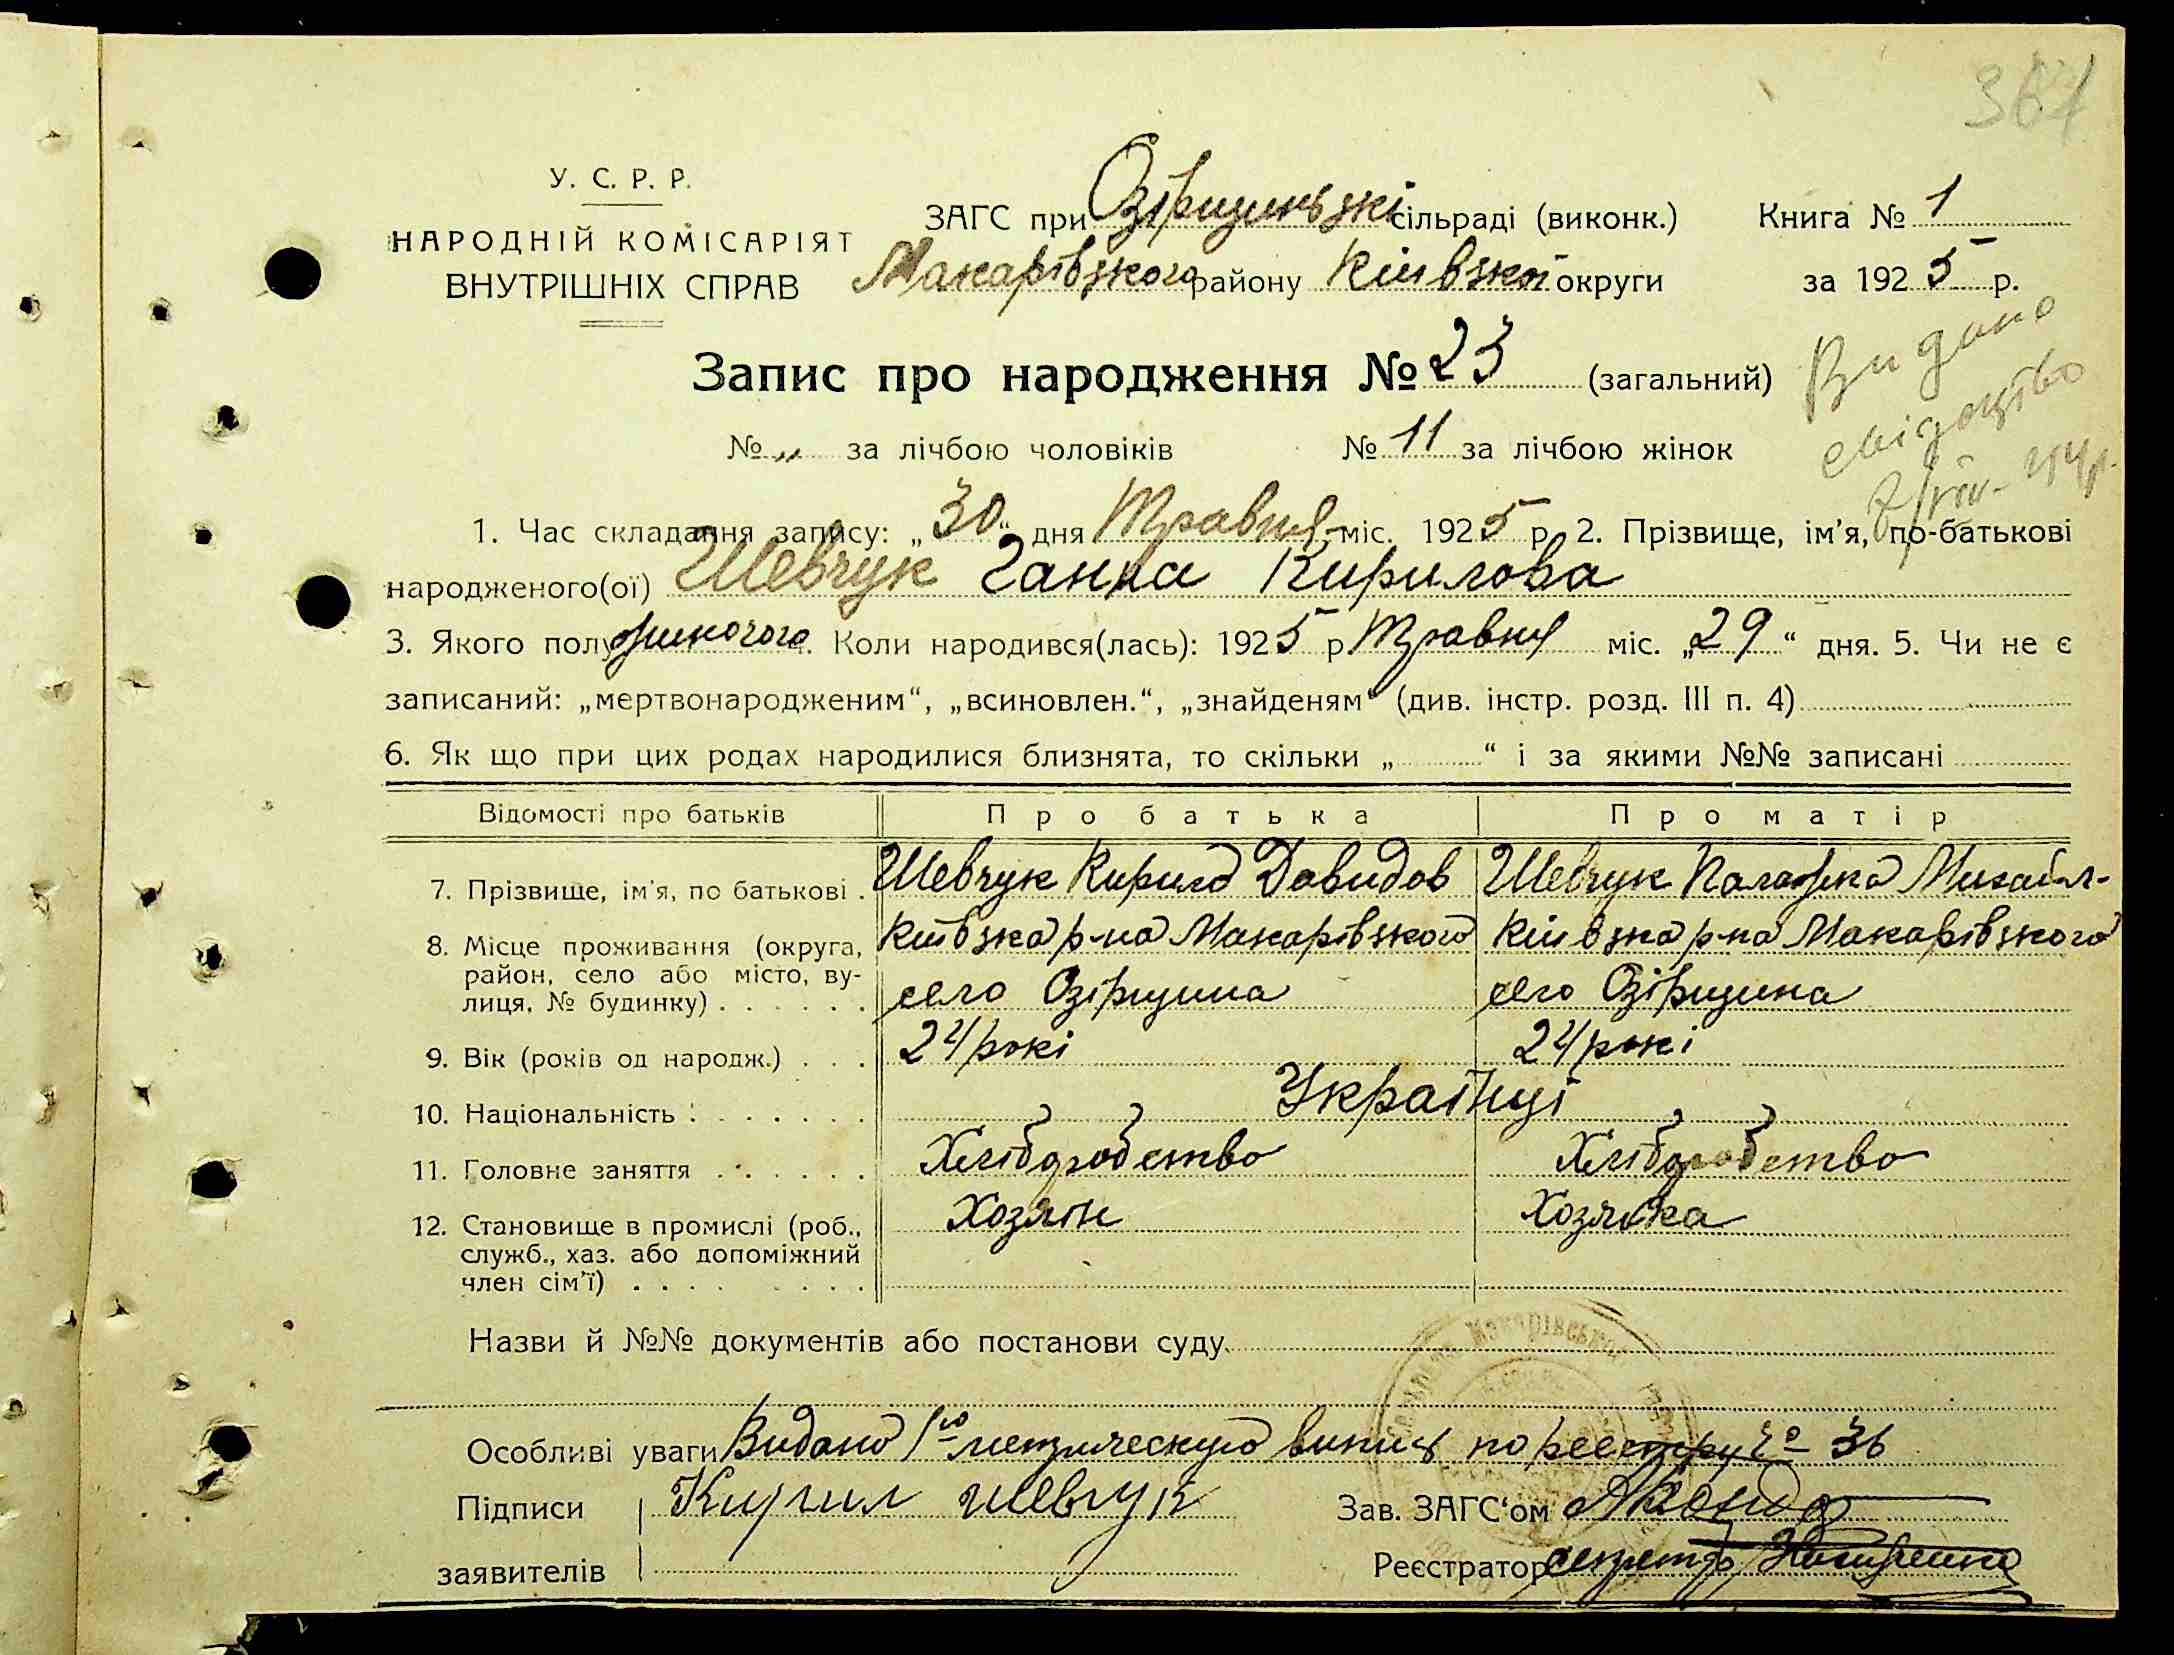 367
У. С. Р. Р.
НАРОДНІЙ КОМІСАРІЯТ
ВНУТРІШНІХ СПРАВ
ЗАГС при Озірщиньські сільраді (виконк.) Книга № 1
Макарівського району Київської округи за 1925 р.
Запис про народження № 23 (загальний)
Видано
свідоцтво
№ „ за лічбою чоловіків № 11 за лічбою жінок
1. Час складання запису: „30“ дня Травня міс. 1925 р. 2. Прізвище, ім'я, по-батькові
народженого(ої) Шевчук Ганна Кирилова
3. Якого полу жиночого. Коли народився(лась): 1925 р. Травня міс. „29“ дня. 5. Чи не є
записаний: „мертвонародженим“, „всиновлен.“, „знайденям“ (див. інстр. розд. III п. 4)
6. Як що при цих родах народилися близнята, то скільки „ “ і за якими №№ записані
Відомості про батьків Про батька Про матір
7. Прізвище, ім'я, по батькові . Шевчук Кирило Давидов Шевчук Палажка Михайл-
8. Місце проживання (округа, Київзка р-на Макарівзкого Київзка р-на Макарівзкого
район, село або місто, ву-
лиця, № будинку) . . . . . . село Озірщина село Озірщина
9. Вік (років од народж.) . . . 24 рокі 24 рокі
10. Національність . . . . . . Українці
11. Головне заняття . . . . . . Хліборобство Хліборобство
12. Становище в промислі (роб., Хозяін Хозяйка
служб., хаз. або допоміжний
член сім'ї) . . . . . . . .
Назви й №№ документів або постанови суду
Особливі уваги Видано 1ю метрическую випись по реестру № 36
Підписи Кирил Шевчук Зав. ЗАГС'ом
заявителів Реєстратор секретар